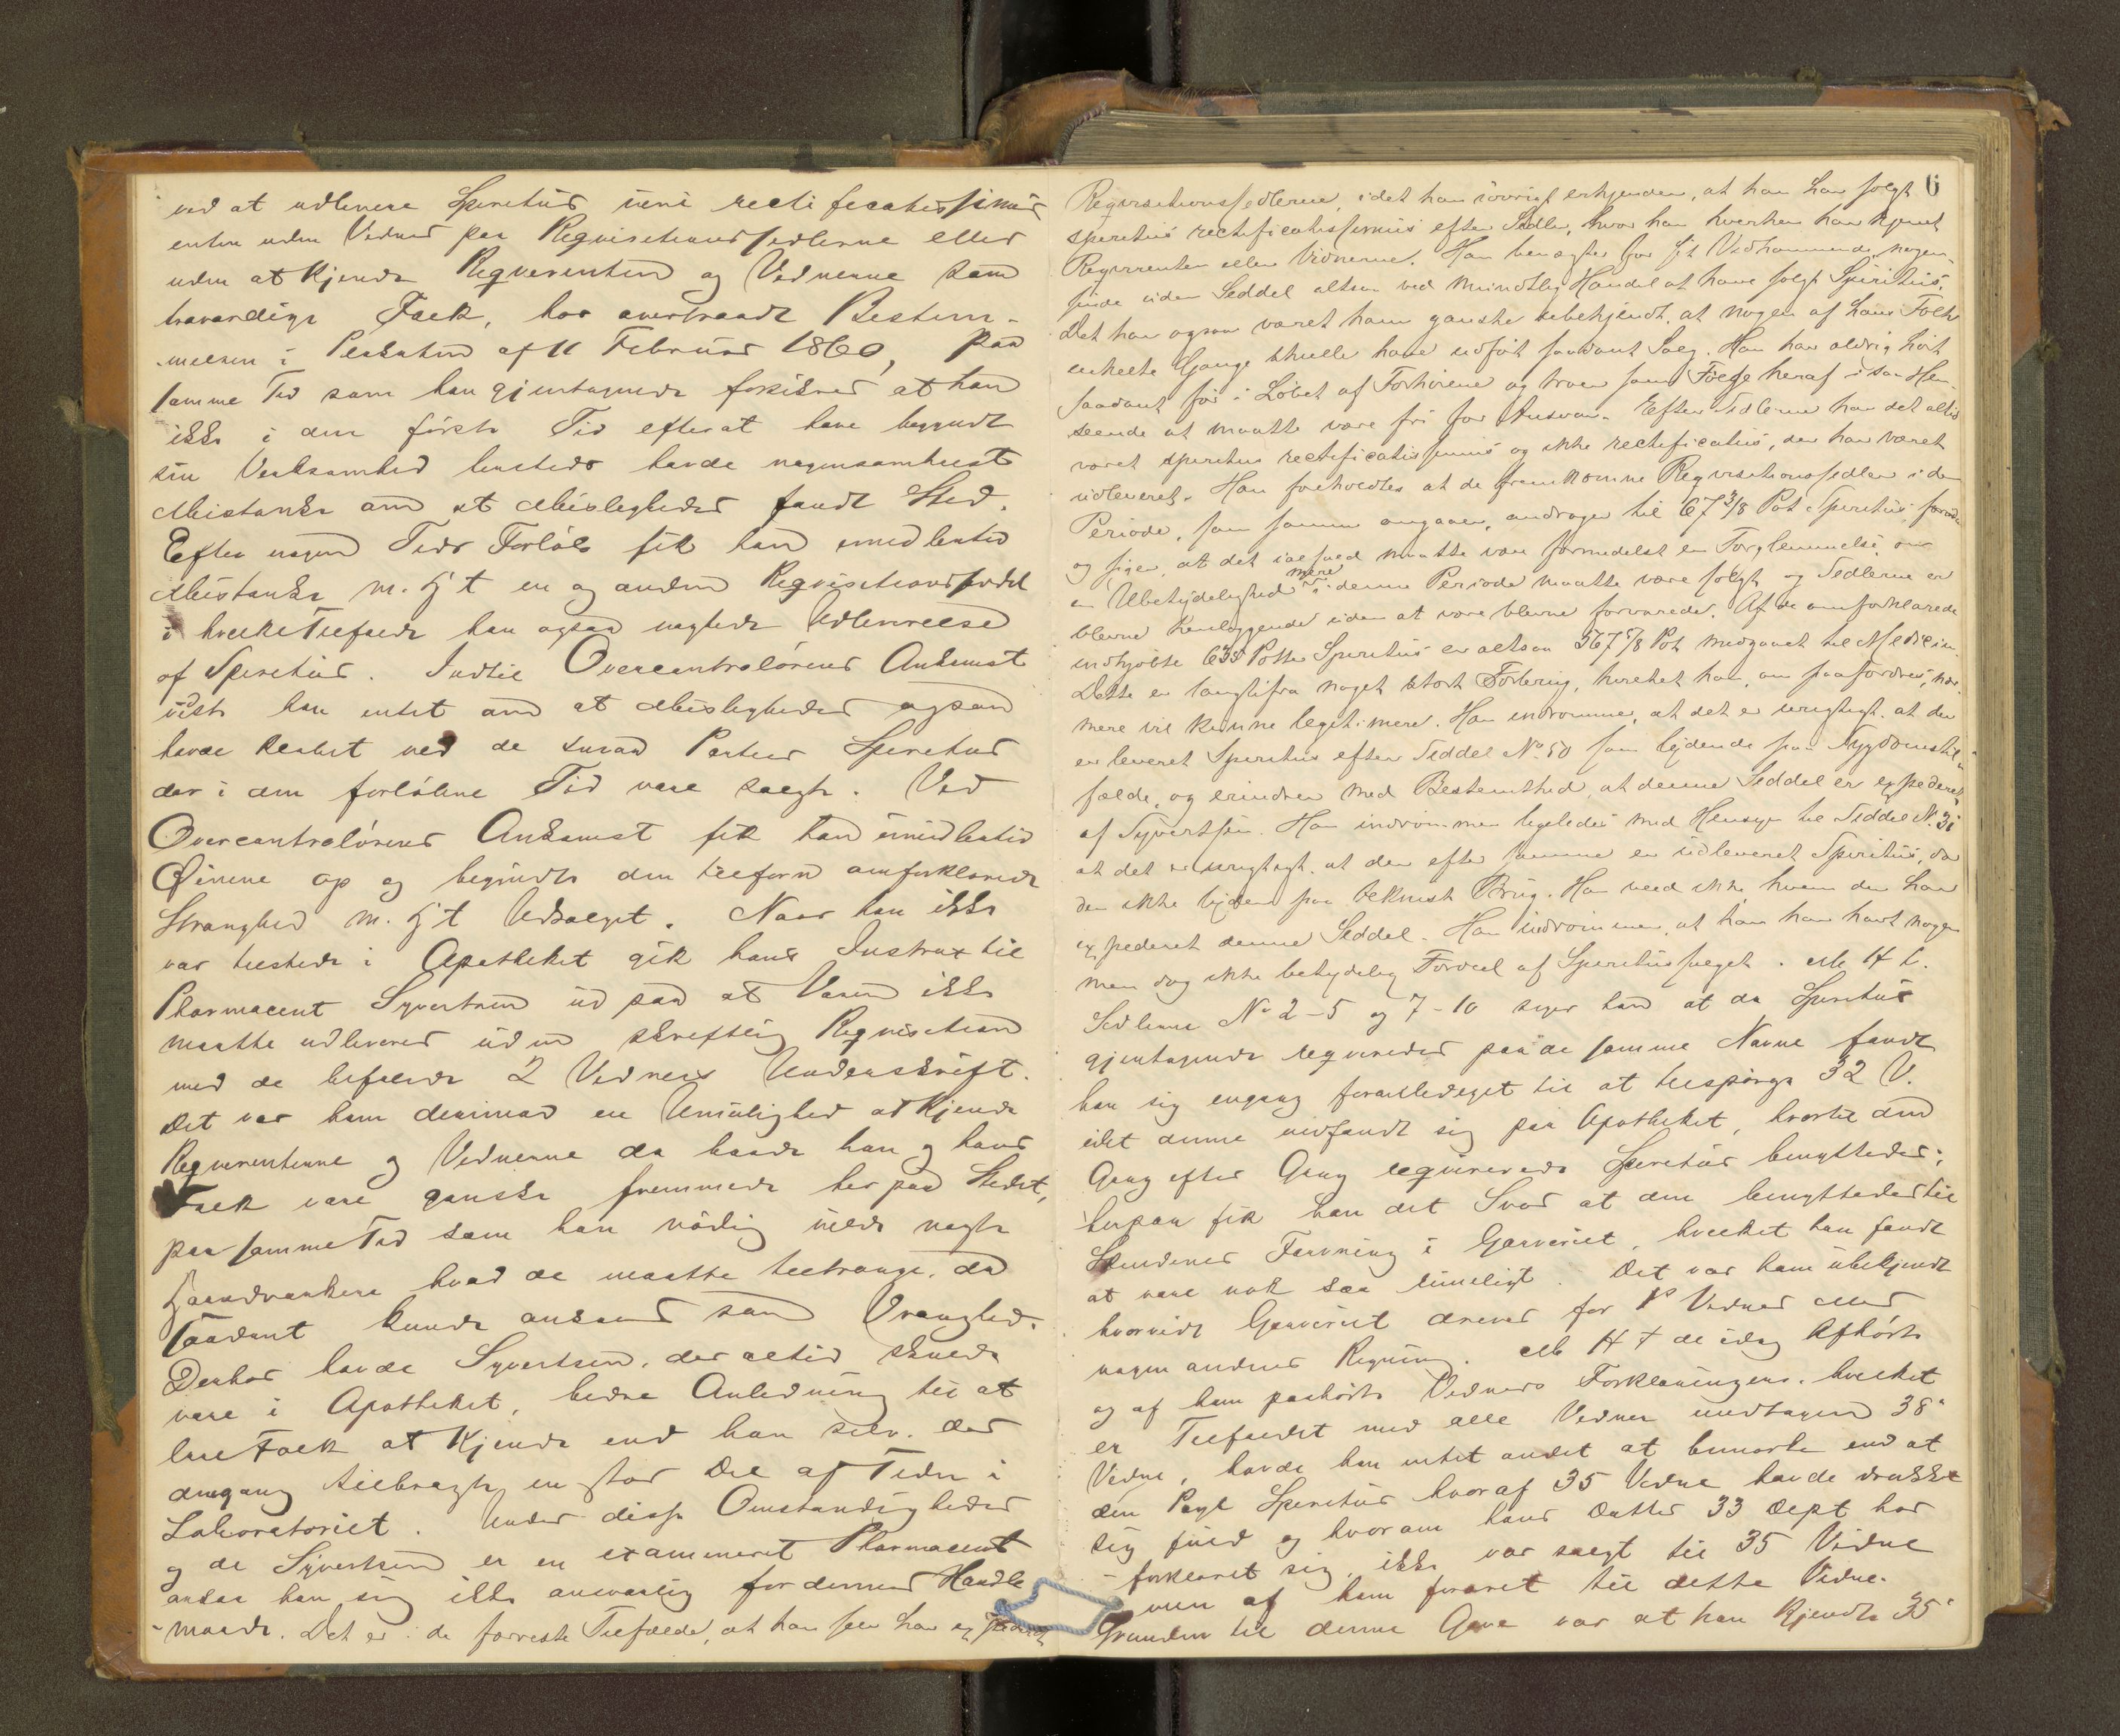 ved at udlevere Spiritus vini rectificatissimus
enten uden Vidner paa Reqvisitionssedlerne eller
uden at kjende Reqvirenten og Vidnerne som
troværdige Folk, har overtraadt Bestem-
melsen i Plakaten af 11 Februar 1860, paa
samme Tid som han gjentagende forsikrer at han
ikke i den første Tid efterat have begyndt
sin Virksomhed hersteds havde nogensomhelst
Mistanke om at Misligheder fandt Sted.
Efter nogen Tids Forløb fik han imidlertid
Mistanke m. H. t. en og anden Reqvisitionsseddel
i hvilke Tilfælde han ogsaa nægtede Udleverelse
af Spiritus. Indtil Overcontrolørens Ankomst
vidste han intet om at Misligheder ogsaa
havde klæbet ved de smaa Partier Spiritus
der i den forløbne Tid vare solgte. Ved
Overcontrolørens Ankomst fik han imidlertid
Øinene op og begyndte den tilforn omforklarede
Stranghed m. H. t. Udsalget. Naar han ikke
var tilstede i Apotheket gik hans Instrux til
Pharmaceut Syvertsen ud paa at Varen ikke
maatte udleveres uden skriftlig Reqvisition
med de befalede 2 Vidners Underskrift.
Det var ham desimod en Umulighed at kjende
Reqvirenterne og Vidnerne da baade han og hans
Folk vare ganske fremmede her paa Stedet,
paa samme Tid som han nødig vilde nægte
Haandværkere hvad de maatte tiltrænge, da
Saadant kunde ansees som Vranghed.
Derhos havde Syvertsen, der altid skulde
være i Apotheket, bedre Anledning til at
lære Folk at kjende end han selv, der
dengang tilbragte en stor Del af Tiden i
Laboratoriet. Under disse Omstændigheder
og da Syvertsen er en examineret Pharmaceut
ansaa han sig ikke ansvarlig for dennes Handle-
maade. Det er de færreste Tilfælde, at han selv har expederet
6
Reqvisitionssedlerne, idet han iøvrigt erkjender, at han har solgt
spiritus rectificatissimus efter Sedler, hvor han hverken har kjendt
Reqvirenten eller Vidnerne. Han benægter for sit Vedkommende nogen-
sinde uden Seddel altsaa ved mundtlig Handel at have solgt Spiritus.
Det har ogsaa været ham ganske ubekjendt, at nogen af hans Folk
enkelte Gange skulle have udført saadant Salg. Han har aldrig hørt
Saadant før i Løbet af Forhørene og troer som Følge heraf i saa Hen-
seende at maatte være fri for Ansvar. Efter Sedlerne har det altid
været spiritus rectificatissimus og ikke rectificatus, der har været
udleveret. Han foreholdtes at de fremkomne Reqvisitionssedler i den
Periode, som samme angaaer, andrager til 67 3/8 Pot Spiritus
og siger, at det isaafald maatte være formedelst en Forglemmelse, om
en Ubetydelighed mere i denne Periode maatte være solgt og Sedlerne er
blevne henliggende uden at være blevne forvarede. Af de omforklarede
indkjøbte 635 Potter Spiritus er altsaa 567 5/8 Pot medgaaet til Medicin.
Dette er langtifra noget stort Forbrug, hvilket han, om paafordres, nær-
mere vil kunne legitimere. Han indrømmer, at det er urigtigt, at der
er leveret Spiritus efter Seddel No 50 som lydende paa Sygdomstil-
fælde, og erindrer med Bestemthed, at denne Seddel er expederet
af Syvertsen. Han indrømmer ligeledes med Hensyn til Seddel No 31
at det er urigtigt, at der efter samme er udleveret Spiritus, da
den ikke lyder paa teknisk Brug. Han veed ikke hvem der har
expederet denne Seddel. Han indrømmer, at han har havt nogen
men dog ikke betydelig Fordeel af Spiritussalget. M. H. t.
Sedlerne No 2-5 og 7-10 siger han at da Spiritus
gjentagende reqvireredes paa de samme Navne fandt
han sig engang foranlediget til at tilspørge 32 V.
idet denne indfandt sig paa Apotheket, hvortil den
Gang efter Gang reqvirerede Spiritus benyttedes;
herpaa fik han det Svar at den benyttedes til
Skindenes Farvning i Garveriet, hvilket han fandt
at være nok saa rimeligt. Det var ham ubekjendt
hvorvidt Garveriet dreves for Vidnes eller
nogen andens Regning. M. H. t. de idag afhørte
og af ham paahørte Vidners Forklaringer, hvilket
er Tilfældet med alle Vidner undtagen 38'
Vidne, havde han intet andet at bemærke end at
den Pægl Spiritus hvoraf 35 Vidne havde drukket
sig fuld og hvorom hans Datter 33 Dept har
forklaret sig, ikke var solgt til 35 Vidne
men af ham foræret til dette Vidne.
Grunden til denne Gave var at han kjendte 35'